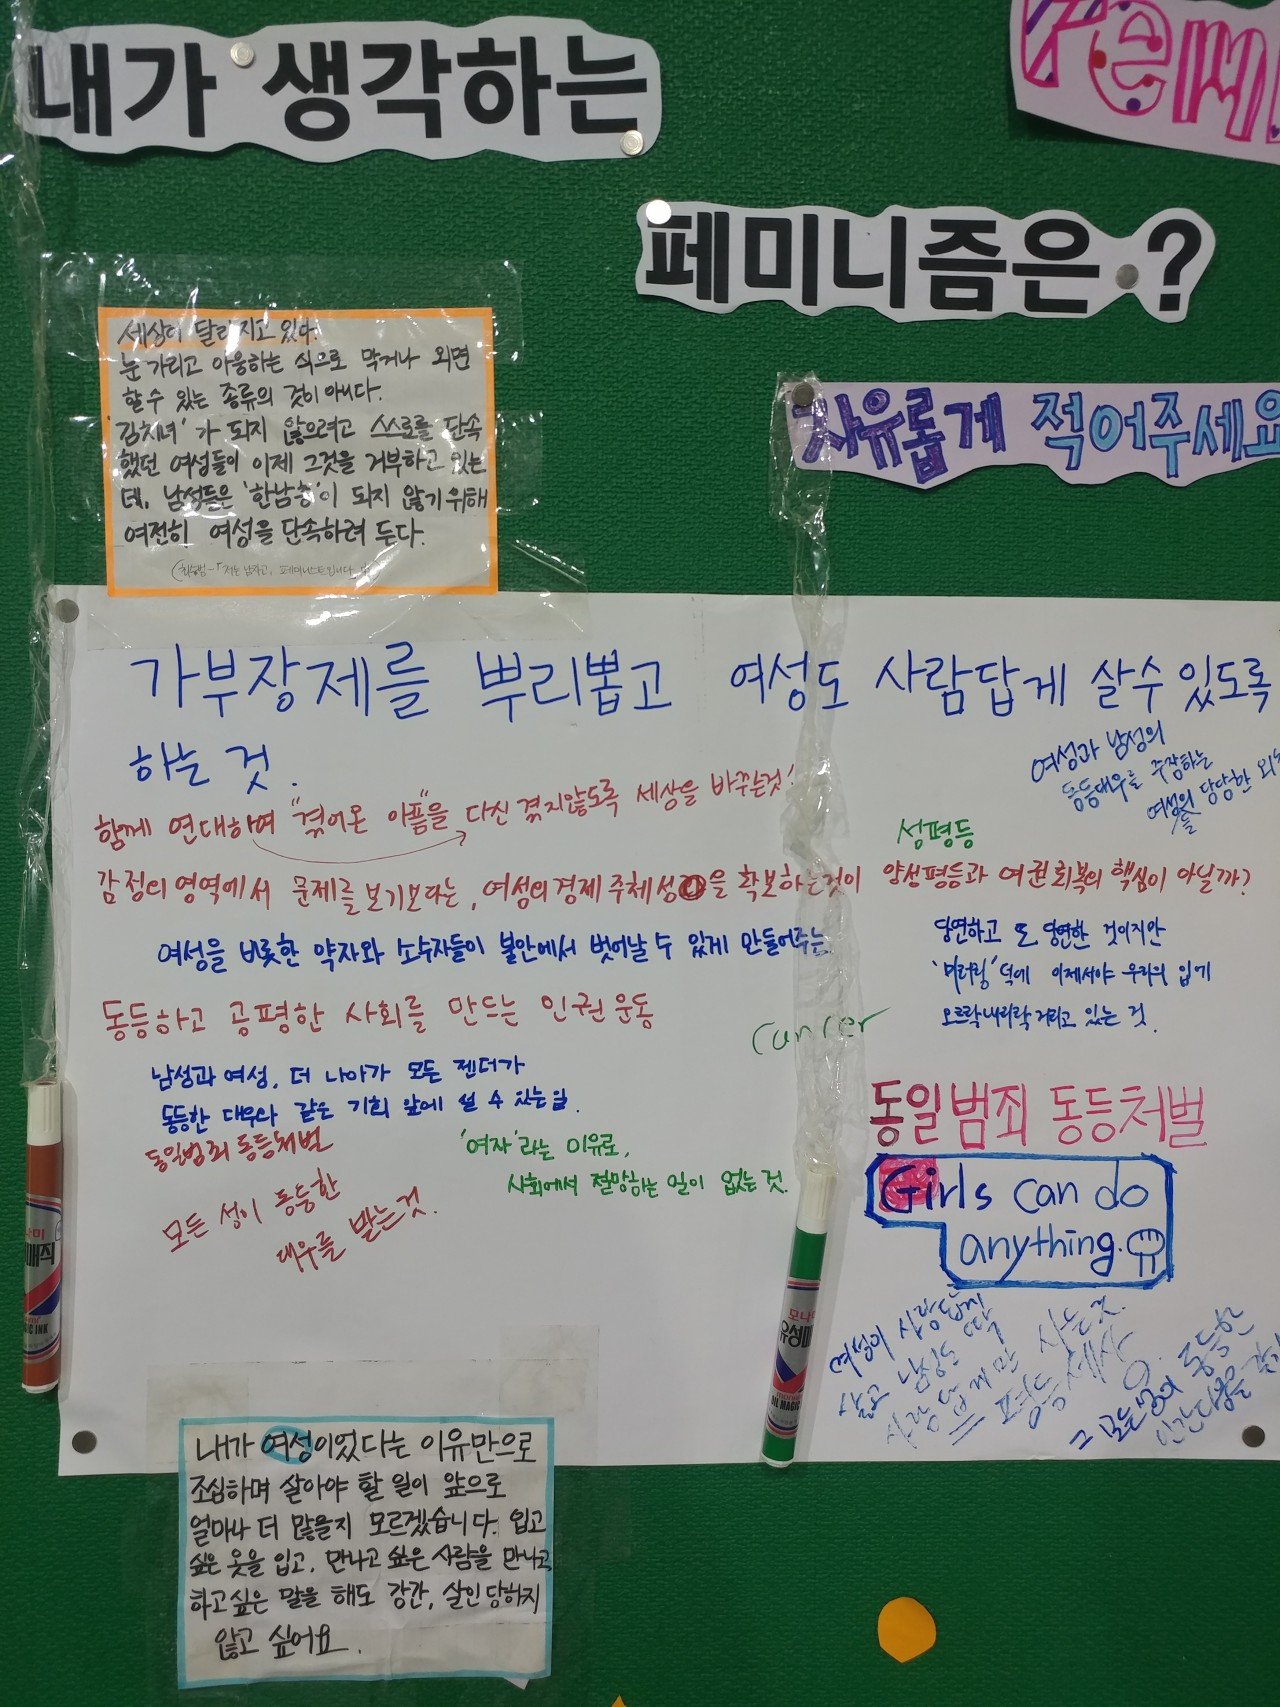 내가 생각하는
Femi
페미니즘은 ?
자유롭게 적어주세요
세상이 달라지고 있다.
눈 가리고 아웅하는 식으로 막거나 외면
할 수 있는 종류의 것이 아니다.
'김치녀'가 되지 않으려고 스스로를 단속
했던 여성들이 이제 그것을 거부하고 있는
데, 남성들은 '한남충'이 되지 않기 위해
여전히 여성을 단속하려 든다.
저는 남자고, 페미니스트입니다
가부장제를 뿌리뽑고 여성도 사람답게 살 수 있도록
하는 것.
여성과 남성의
동등대우를 주장하는
여성들의 당당한 외
함께 연대하여 "겪어온 아픔"을 다신 겪지않도록 세상을 바꾸는것!
성평등
감정의 영역에서 문제를 보기보다는, 여성의 경제 주체성을 확보하는것이 양성평등과 여권 회복의 핵심이 아닐까?
여성을 비롯한 약자와 소수자들이 불안에서 벗어날 수 있게 만들어주는
당연하고 또 당연한 것이지만
'미러링' 덕에 이제서야 우리의 입에
오르락내리락 거리고 있는 것.
동등하고 공평한 사회를 만드는 인권 운동
Cancer
남성과 여성, 더 나아가 모든 젠더가
동등한 대우와 같은 기회 앞에 설 수 있는 일.
동일범죄 동등처벌
'여자'라는 이유로,
사회에서 절망하는 일이 없는 것.
모든 성이 동등한
대우를 받는것.
동일범죄 동등처벌
Girls can do
anything.
여성이 사람답게
살고 남성도 딱
사람답게만 사는것.
= 평등세상
모나미
유성매
OIL MAGIC
매직
MAGIC INK
내가 여성이었다는 이유만으로
조심하며 살아야 할 일이 앞으로
얼마나 더 많을지 모르겠습니다. 입고
싶은 옷을 입고, 만나고 싶은 사람을 만나고
하고싶은 말을 해도 강간, 살인 당하지
않고 싶어요.